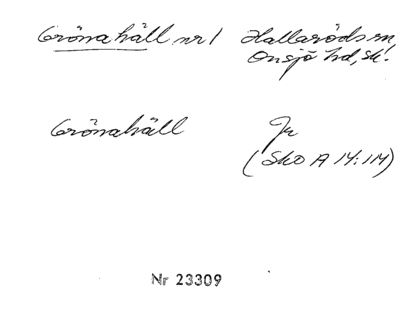 Grönahäll nr 1 Hallaröds sn
Onsjö hd, sk!
Grönahäll Jr
(Sko A 14:14)
Nr 23309